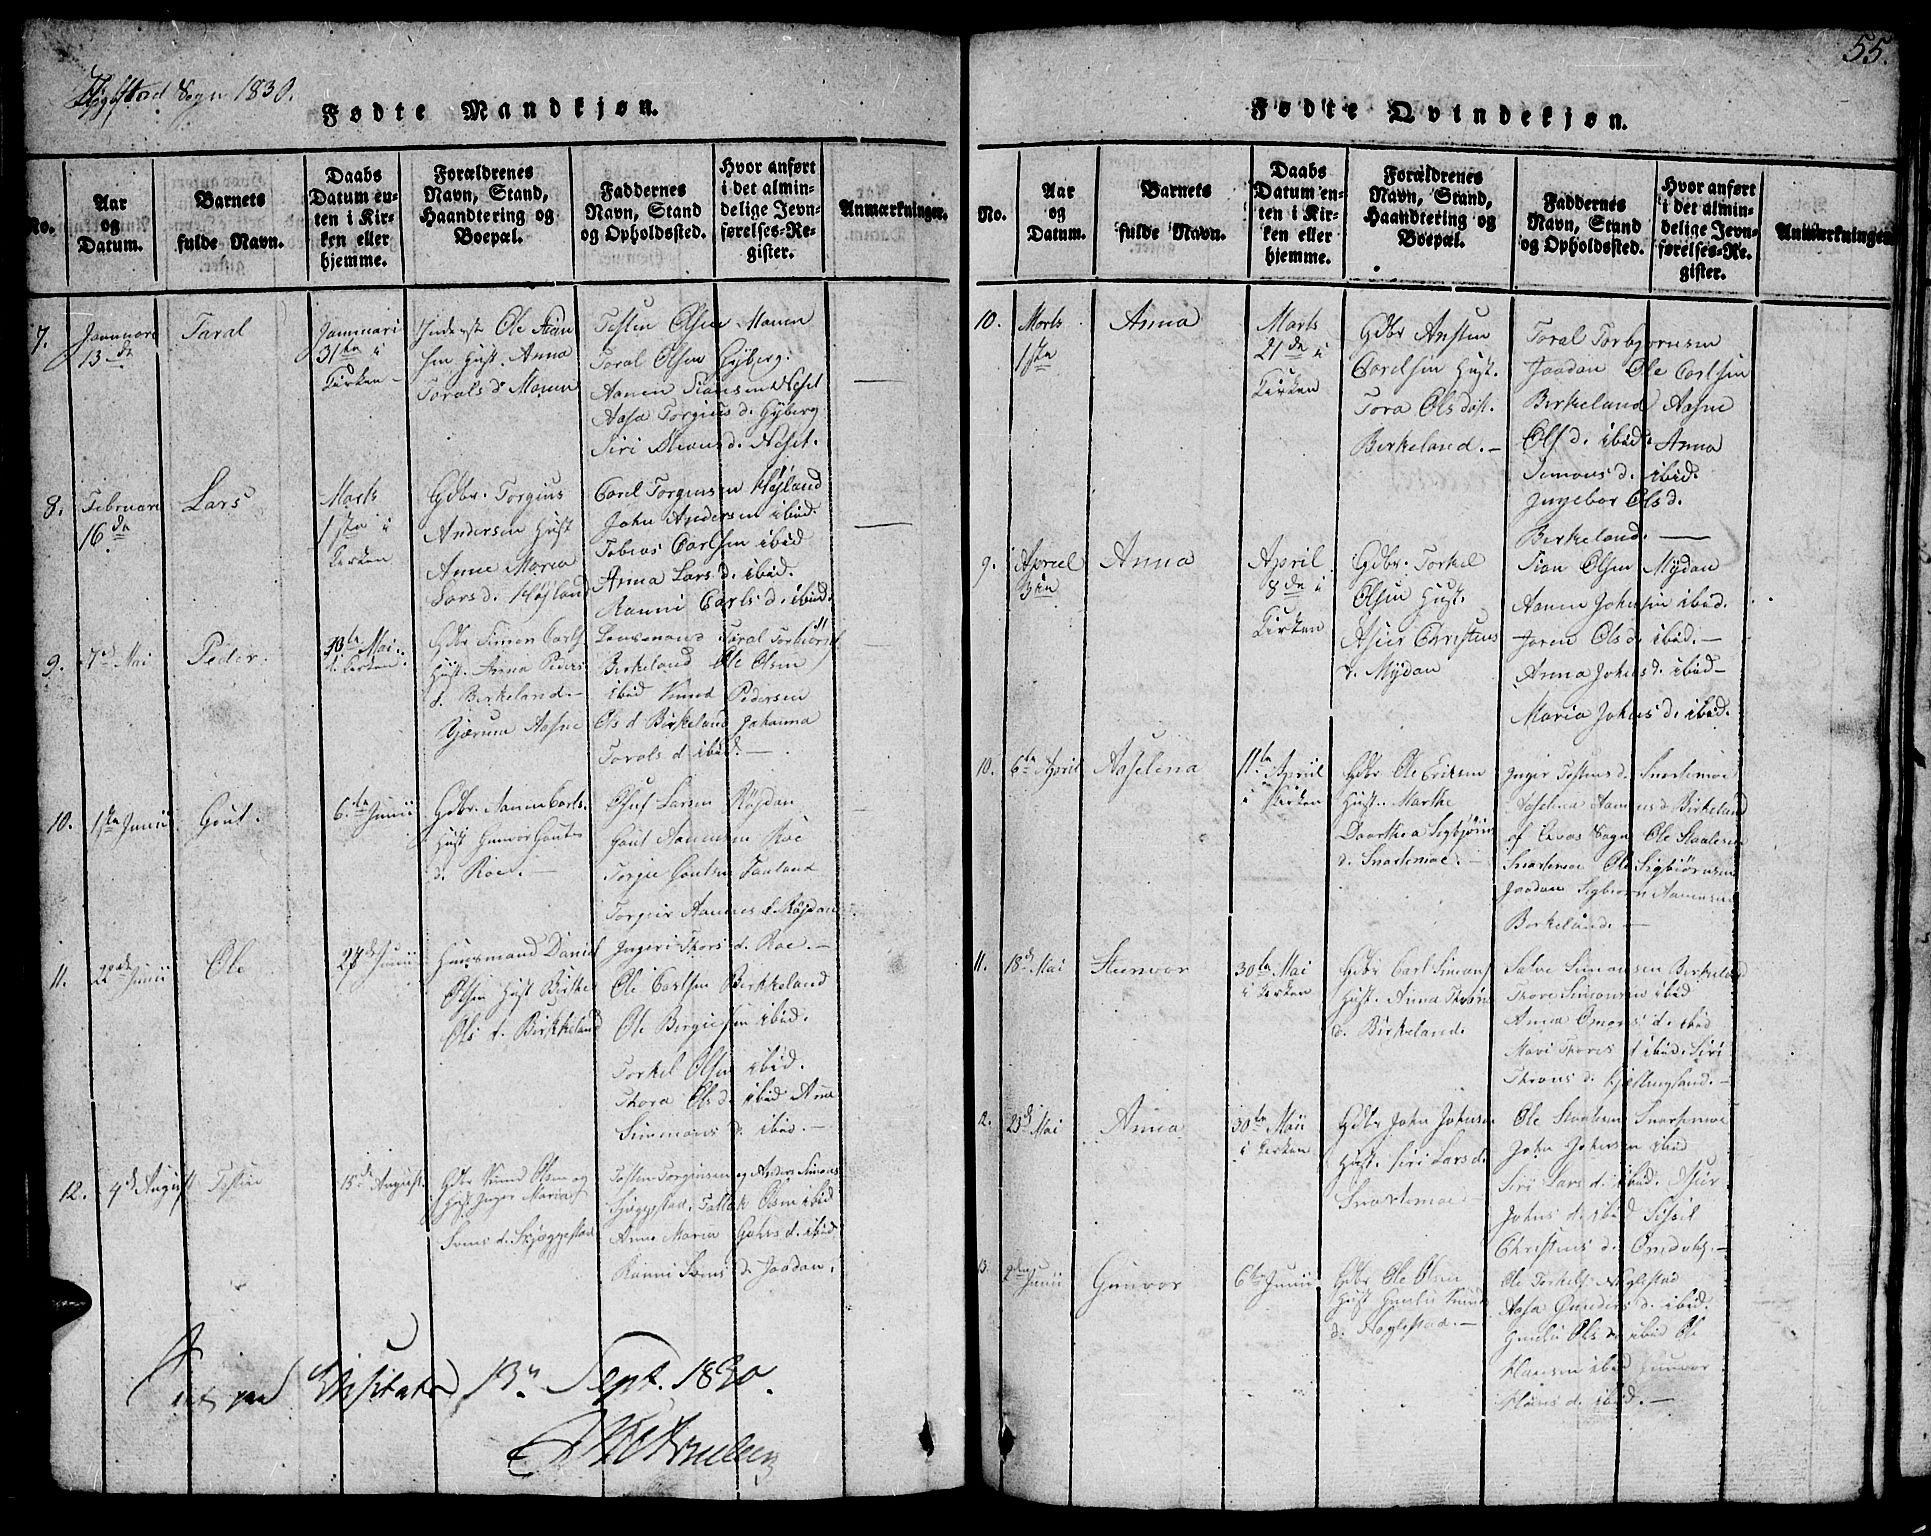 55.
Hægestad Sogn 1830.
Fødte Mandkjøn.
No.
Aar
og
Datum.
Barnets
fulde Navn.
Daabs
Datum en-
ten i Kir-
ken eller
hjemme.
Forældrenes
Navn, Stand,
Haandtering og
Boepæl.
Faddernes
Navn, Stand
og Opholdssted.
Hvor anført
i det almin-
delige Jevn-
førelses-Re-
gister.
Anmærkninger.
7.
Januari
13de
Taral
Januari
31te i
Kirken
Inderst Ole Aan
sen Hust. Anna
Tarals d. Monen
Testen Olsen Monen
Taral Olsen Gyberg.
Aanen Tiansen Neset
Aasa Torgius d. Gyberg
Siri Steans d. Neset.
8.
Februari
16de
Lars
Marts
1ste i
Kirken
Gdbr. Torgius
Andersen Hust
Anne Maria
Lars d. Højland
Carel Torgiusen Højland
John Andersen ibid
Tobias Carlsen ibid
Anna Lars d. ibid.
Ranni Carls d. ibid.
9.
7de Mai
Peder.
30te Mai
i Kirken.
Gdbr Simon Carls
Hust. Anna Peders
d. Birkeland.
Lensmand Taral Torbiørns
Birkeland Ole Olsen
ibid Knud Pedersen
Bjærum Aasne Ols d Birkeland Johanna
Tarals d ibid.
10.
1ste Junii
Gout.
6te Junii
Gdbr. Aanen Carls.
Hust Gunvor Gouts
d. Roe.
Oluf Larsen Røjdan
Gout Aanensen Roe
Torgie Goutsen Fauland
Torgier Aanens d. Røjdan
11.
22de Junii
Ole
27de Junii
Huusmand Daniel
Olsen Hust Birthe
Ols d. Birkkeland
Ingeri Thors d. Roe.
Ole Carlsen Birkkeland
Ole Birgiesen ibid.
Torkel Olsen ibid.
Thora Ols d. ibid Anna
Simmons d. ibid.
12.
4de August
Testen
15de August.
Gdbr Knud Olsen og
Hust. Inger Maria
Svens d. Skjeggestad
Tosten Torgiusen og Anders Simons
Skjeggestad. Tallak Olsen ibid
Anne Maria Gahrs d. ibid
Ranni Svens d. Jaadan.
Visitatio 13de Sept. 1830.
Fødte Qvindekjøn.
No.
Aar
og
Datum.
Barnets
fulde Navn.
Daabs
Datum en-
ten i Kir-
ken eller
hjemme.
Forældrenes
Navn, Stand,
Haandtering og
Boepæl.
Faddernes
Navn, Stand
og Opholdssted.
Hvor anført
i det almin-
delige Jevn-
førelses-Re-
gister.
Anmærkninger.
10.
Marts
1ste
Anna
Marts
21de i
Kirken
Gdbr Ansten
Carelsen Hust.
Tora Olsdat.
Birkeland.
Taral Torbjørnsen
Jaadan Ole Carlsen
Birkeland Aasne
Ols d. ibid. Anna
Simons d. ibid.
Ingebor Ols d.
Birkeland.
9.
Apriel
3die
Anna
April
8de i
Kirken
Gdbr. Torkel
Olsen Hust.
Asier Christens
d. Mydan
Tian Olsen Mydan
Aanen Johnsen ibid.
Joren Ols d. ibid.
Anna Johns d. ibid
Maria Johns d. ibid.
10.
6te April
Aaselena
11te April
i Kirken
Gdbr Ole Eriksen
Hust. Marthe
Dorthea Sigbjørns
d. Snartemoe.
Inger Testens d. Snartemoe
Aaselina Aanens d Birkeland
af Qvas Sogn Ole Staalesen
Snartemoe Ole Sigbiørnsen
Jaadan Sigbiørn Aanensen
Birkeland.
11.
18de Mai
Steenvor
30te Mai
i Kirken
Gdbr Carl Simons
Hust. Anna Thrøns
d. Birkeland.
Salve Simonsen Birkeland
Thore Simonsen ibid
Anna Omons d. ibid
Mari Thores d ibid. Siri
Throns d. Kjellingland.
12.
23de Mai
Anna
30te Maii
i Kirken
Gdbr John Johnsen
Hust. Siri Lars d.
Snartemoe.
Ole Staalesen Snartemoe
John Johnsen ibid
Siri Lars d. ibid. Asier
Johns d. ibid Sissel
Christens d. Omdals.
13.
2den Junii
Gunvor
6te Junii
Gdbr Ole Olsen
Hust Gunild Knuds
d. Noglestad.
Ole Torkels. Noglestad
Aasa Gunders d. ibid.
Gunild Ols d. ibid Ole
Hansen ibid Gunvor
Hans d. ibid.